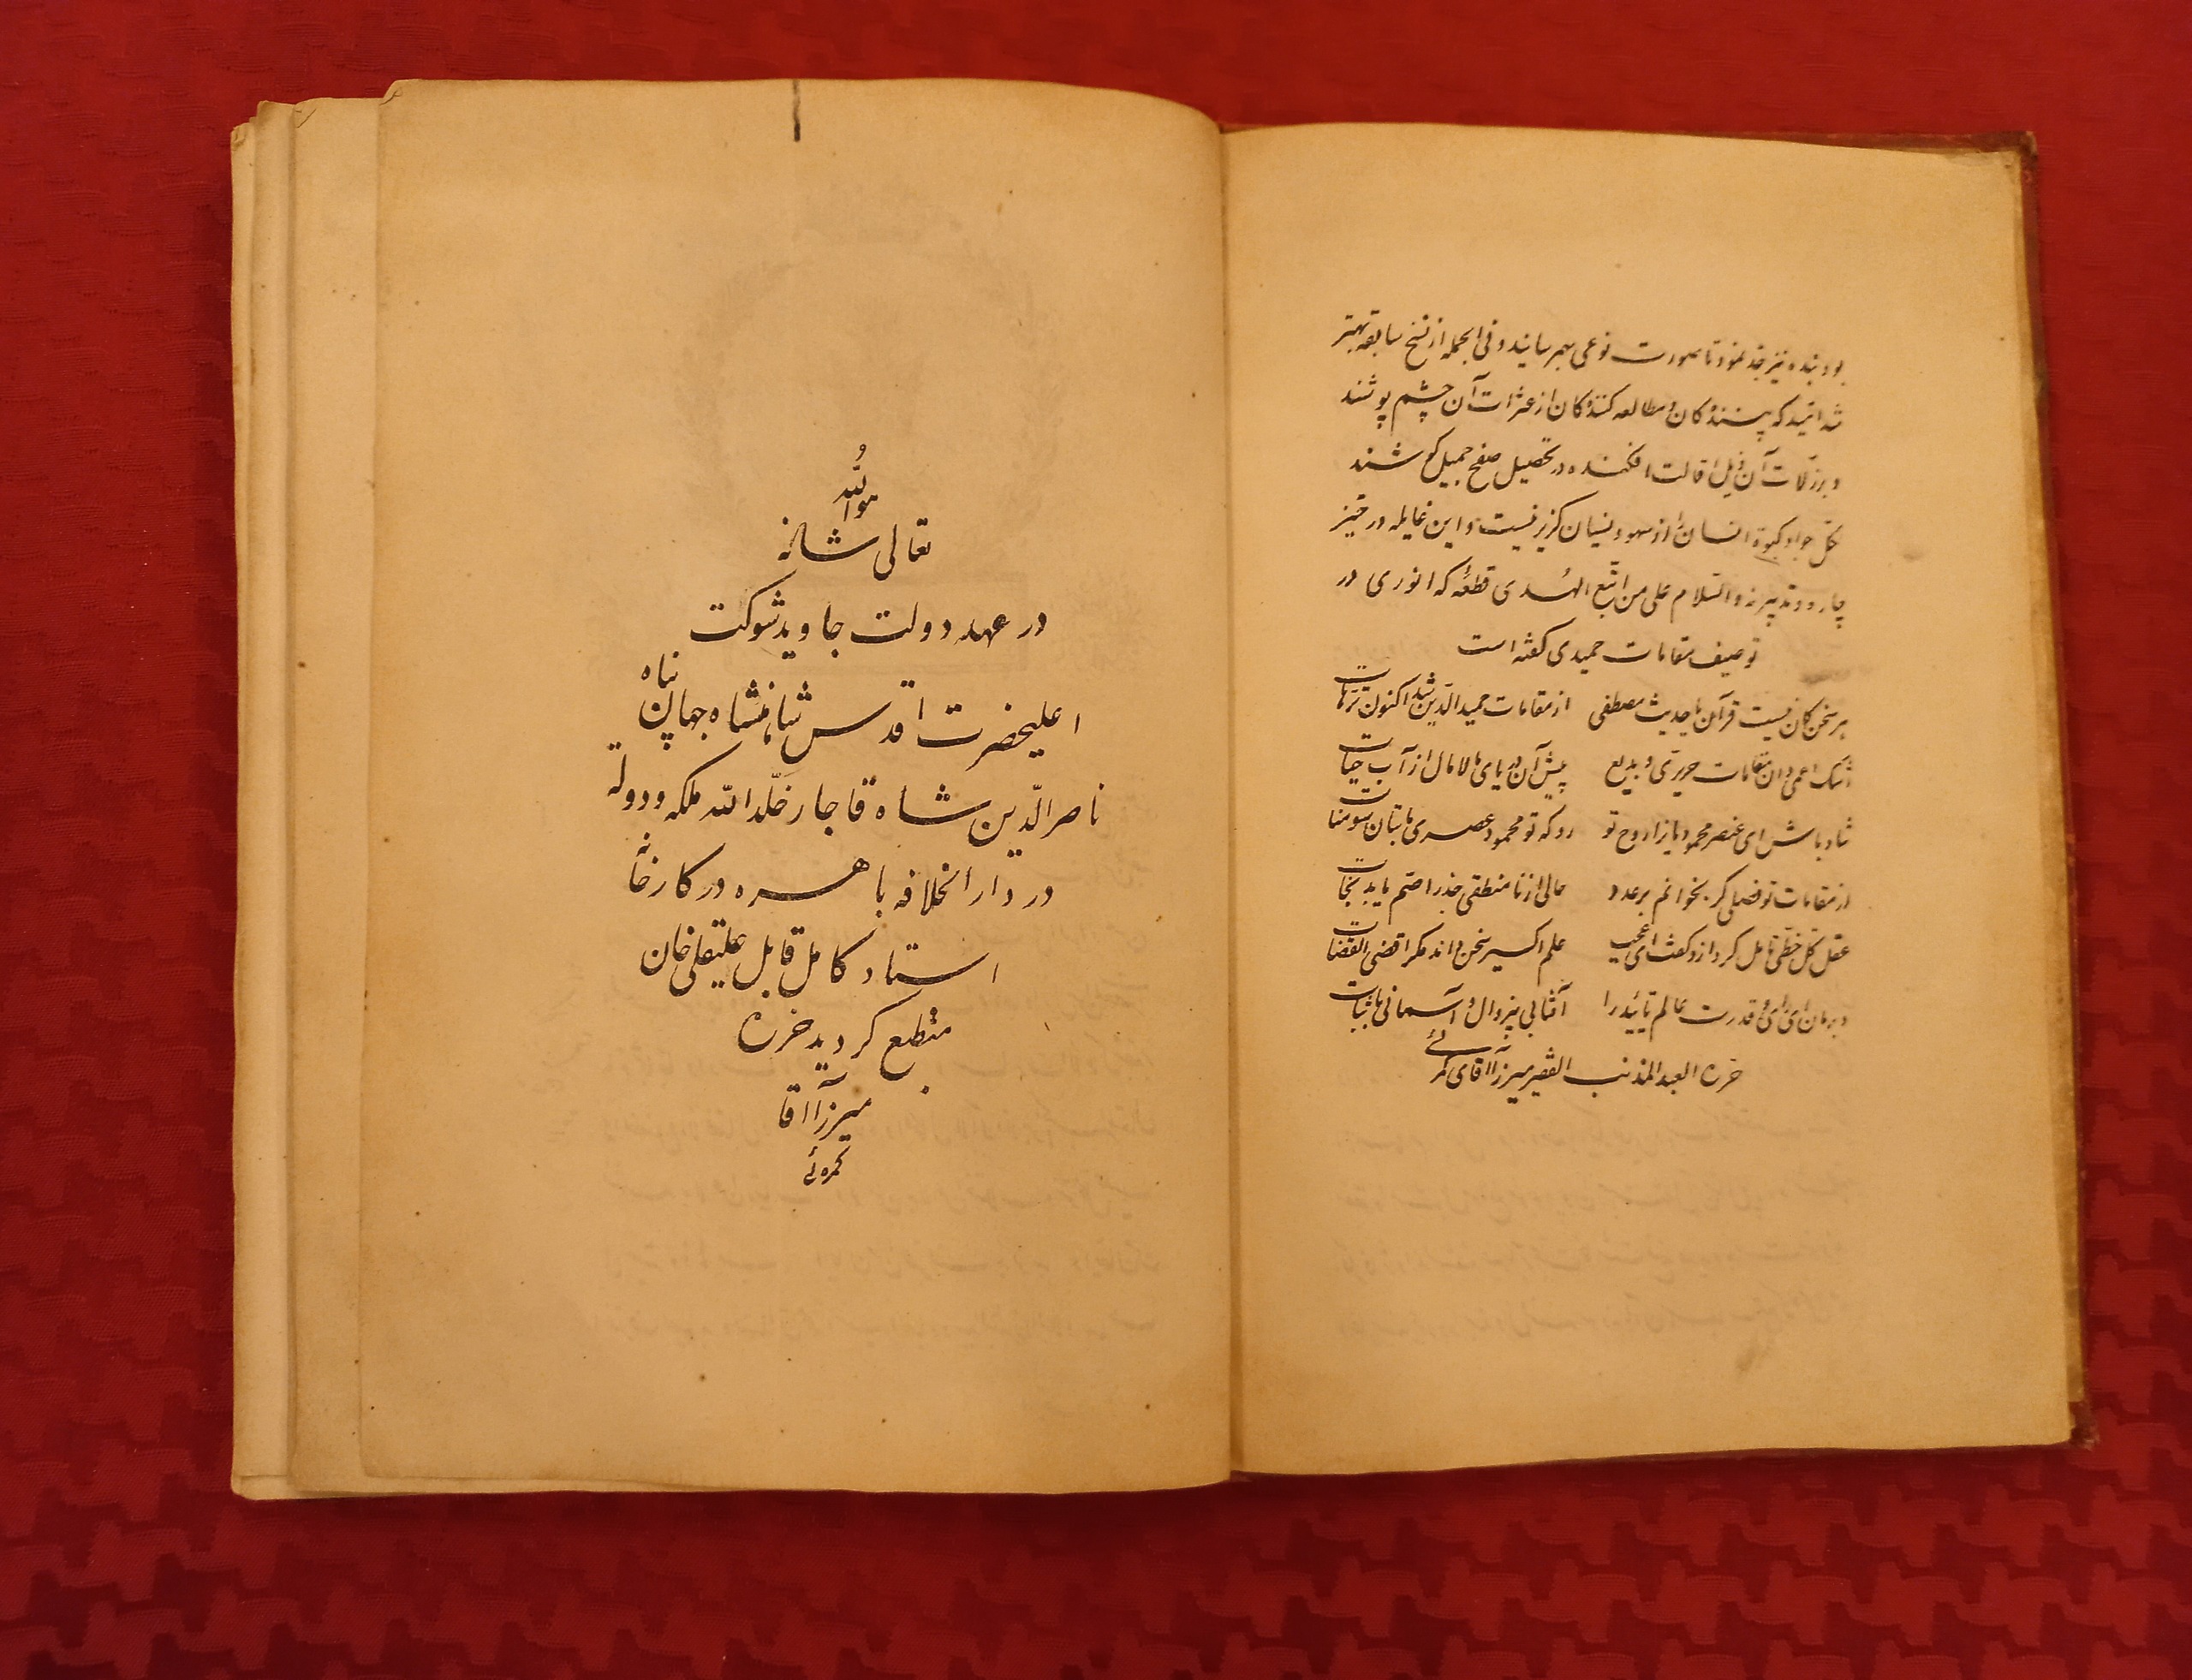 بود بنده نیز جد نمود تا صورت نوعی بهم رسانید و فی الجمله از نسخ سابقه بهتر
شد امید که بینندگان و مطالعه کنندگان از عثرات آن چشم پوشند
و بر زلات آن ذیل اقالت افکنده در تحصیل صفح جمیل کوشند
لکل جواد کبوة انسان را از سهو و نسیان گزیر نیست و این غایله در حیز
چاره و تدبیر نه والسّلام علی من اتّبع الهُدی قطعهٔ که انوری در
توصیف مقامات حمیدی گفته است
هر سخن کان نیست قرآن یا حدیث مصطفی از مقامات حمید الدّین شد اکنون ترّهات
اشک اعمی دان مقامات حریری و بدیع پیش آن دریای مالامال از آب حیات
شاد باش ای عنصر محمودیان را روح تو رو که تو محمود عصری ما بتان سومنات
از مقامات تو فصلی گر بخوانم بر عدد حالی از نامنطقی جذر اصم یابد نجات
عقل کل خطّی تامل کرد ازو گفت ای عجب علم اکسیر سخن داند مگر اقضی القضات
دیر مان ای رای و قدرت عالم تایید را آفتابی بیزوال و آسمانی با ثبات
حرره العبد المذنب الفقیر میرزا آقای کمرئی
هو الله
تعالی شانه
در عهد دولت جاوید شوکت
اعلیحضرت اقدس شاهنشاه جهان پناه
ناصر الدّین شاه قاجار خلّد الله ملکه و دولة
در دار الخلافه باهره در کارخانهٔ
استاد کامل قابل علیقلی خان
منطبع گردید حرره
میرزا آقا
کمره ئی